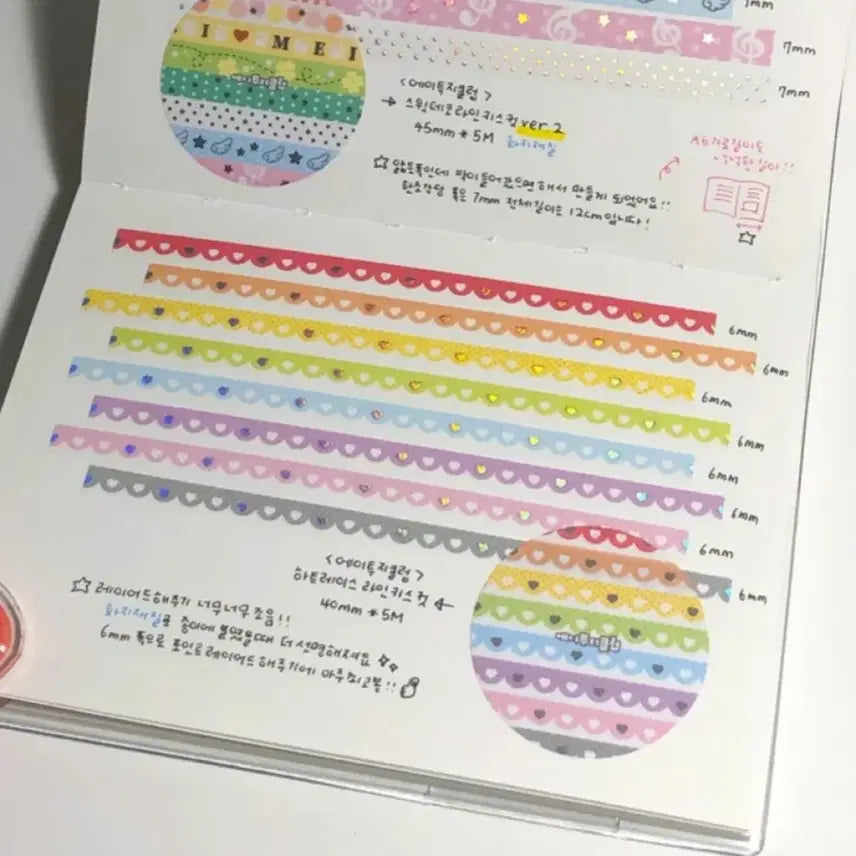 7mm
7mm
7mm
I ♥ MEI
<에이투지클럽>
→ 스윗데코라인키스컷 ver.2
45mm * 5M 화지재질
☆ 얇은폭인데 많이들어갔으면해서 만들게 되었어요!!
한조각당 폭은 7mm 전체길이는 12cm입니다!
A6가로길이도
6mm
6mm
6mm
6mm
6mm
6mm
6mm
6mm
<에이투지클럽>
하트레이스 라인키스컷 ←
40mm * 5M
☆ 레이어드해주기 너무너무 조음!!
화지재질로 종이에 붙였을때 더 선명해져요
6mm 폭으로 포인트레이어드 해주기에 아주최고봉!!
에이투지클럽